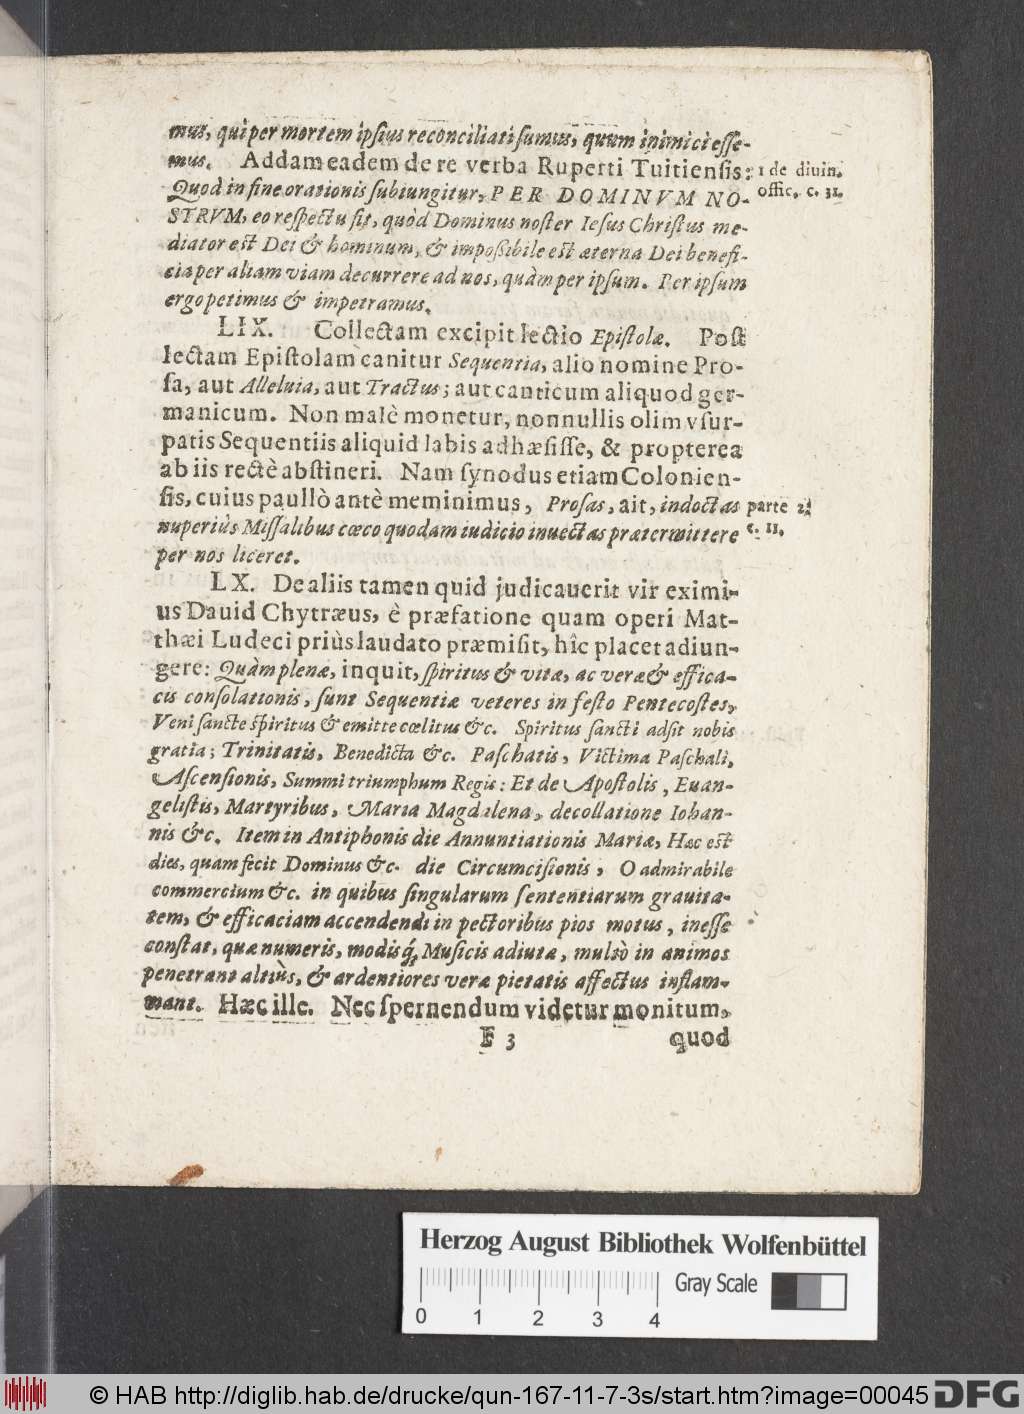 mus, qui per mortem ipsius reconciliati sumus, quum inimici esse-
mus. Addam eadem de re verba Ruperti Tuitiensis:
1 de divin.
offic. c. 31.
Quod in fine orationis subiungitur, PER DOMINVM NO-
STRVM, eo respectu fit, quòd Dominus noster Iesus Christus me-
diator est Dei & hominum, & impoßibile est æterna Dei benefi-
cia per aliam viam decurrere ad nos, quàm per ipsum. Per ipsum
ergo petimus & impetramus.
LIX. Collectam excipit lectio Epistolæ. Post
lectam Epistolam canitur Sequentia, alio nomine Pro-
sa, aut Alleluia, aut Tractus; aut canticum aliquod ger-
manicum. Non malè monetur, nonnullis olim vsur-
patis Sequentiis aliquid labis adhæsisse, & propterea
ab iis rectè abstineri. Nam synodus etiam Colonien-
sis, cuius paullò antè meminimus, Prosas, ait, indoctas
parte 2.
c. 11.
nuperiùs Missalibus cœco quodam iudicio inuectas prætermittere
per nos liceret.
LX. De aliis tamen quid judicauerit vir eximi-
us Dauid Chytræus, è præfatione quam operi Mat-
thæi Ludeci priùs laudato præmisit, hîc placet adiun-
gere: Quàm plenæ, inquit, spiritus & vitæ, ac veræ & effica-
cis consolationis, sunt Sequentiæ veteres in festo Pentecostes,
Veni sancte spiritus & emitte cœlitus &c. Spiritus sancti adsit nobis
gratia; Trinitatis, Benedicta &c. Paschatis, Victima Paschali,
Ascensionis, Summi triumphum Regis: Et de Apostolis, Euan-
gelistis, Martyribus, Maria Magdalena, decollatione Iohan-
nis &c. Item in Antiphonis die Annuntiationis Mariæ, Hæc est
dies, quam fecit Dominus &c. die Circumcisionis, O admirabile
commercium &c. in quibus singularum sententiarum grauita-
tem, & efficaciam accendendi in pectoribus pios motus, inesse
constat, quæ numeris, modisq́; Musicis adiutæ, multò in animos
penetrant altiùs, & ardentiores veræ pietatis affectus inflam-
mant. Hæc ille. Nec spernendum videtur monitum,
F 3 quod
Herzog August Bibliothek Wolfenbüttel
Gray Scale
0 1 2 3 4
© HAB http://diglib.hab.de/drucke/qun-167-11-7-3s/start.htm?image=00045
DFG